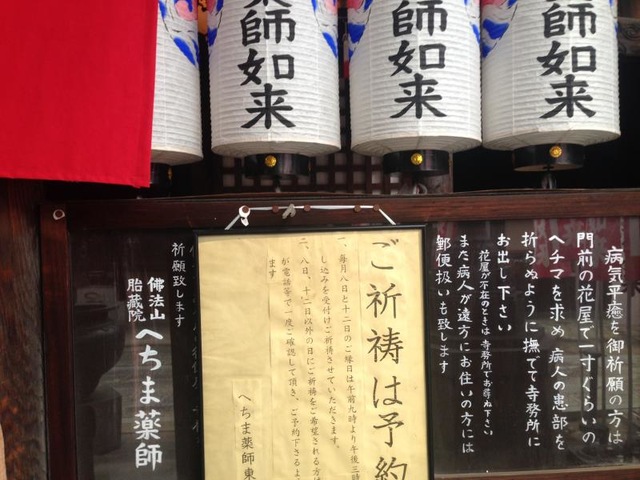 薬師如来
師如来
師如来
病気平癒を御祈願の方は
門前の花屋で一寸ぐらいの
ヘチマを求め 病人の患部を
折らぬように撫でて寺務所に
お出し下さい
花屋が不在のときは寺務所でお尋ね下さい
また病人が遠方にお住いの方には
郵便扱いも致します
ご祈祷は予約
一、毎月八日と十二日のご縁日は午前九時より午後三時
し込みを受付けご祈祷させていただきます。
二、八日、十二日以外の日にご祈祷をご希望される方は
が電話等で一度ご確認して頂き、ご予約下さるよう
ます
へちま薬師東
祈願致します
佛法山
胎藏院
へちま薬師